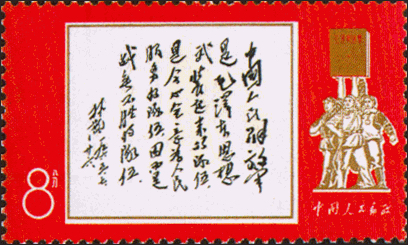 中国人民解放军
是毛泽东思想
武装起来的队伍
是全心全意为人民
服务的队伍因而是
战无不胜的队伍
林彪
8分
中国人民邮政